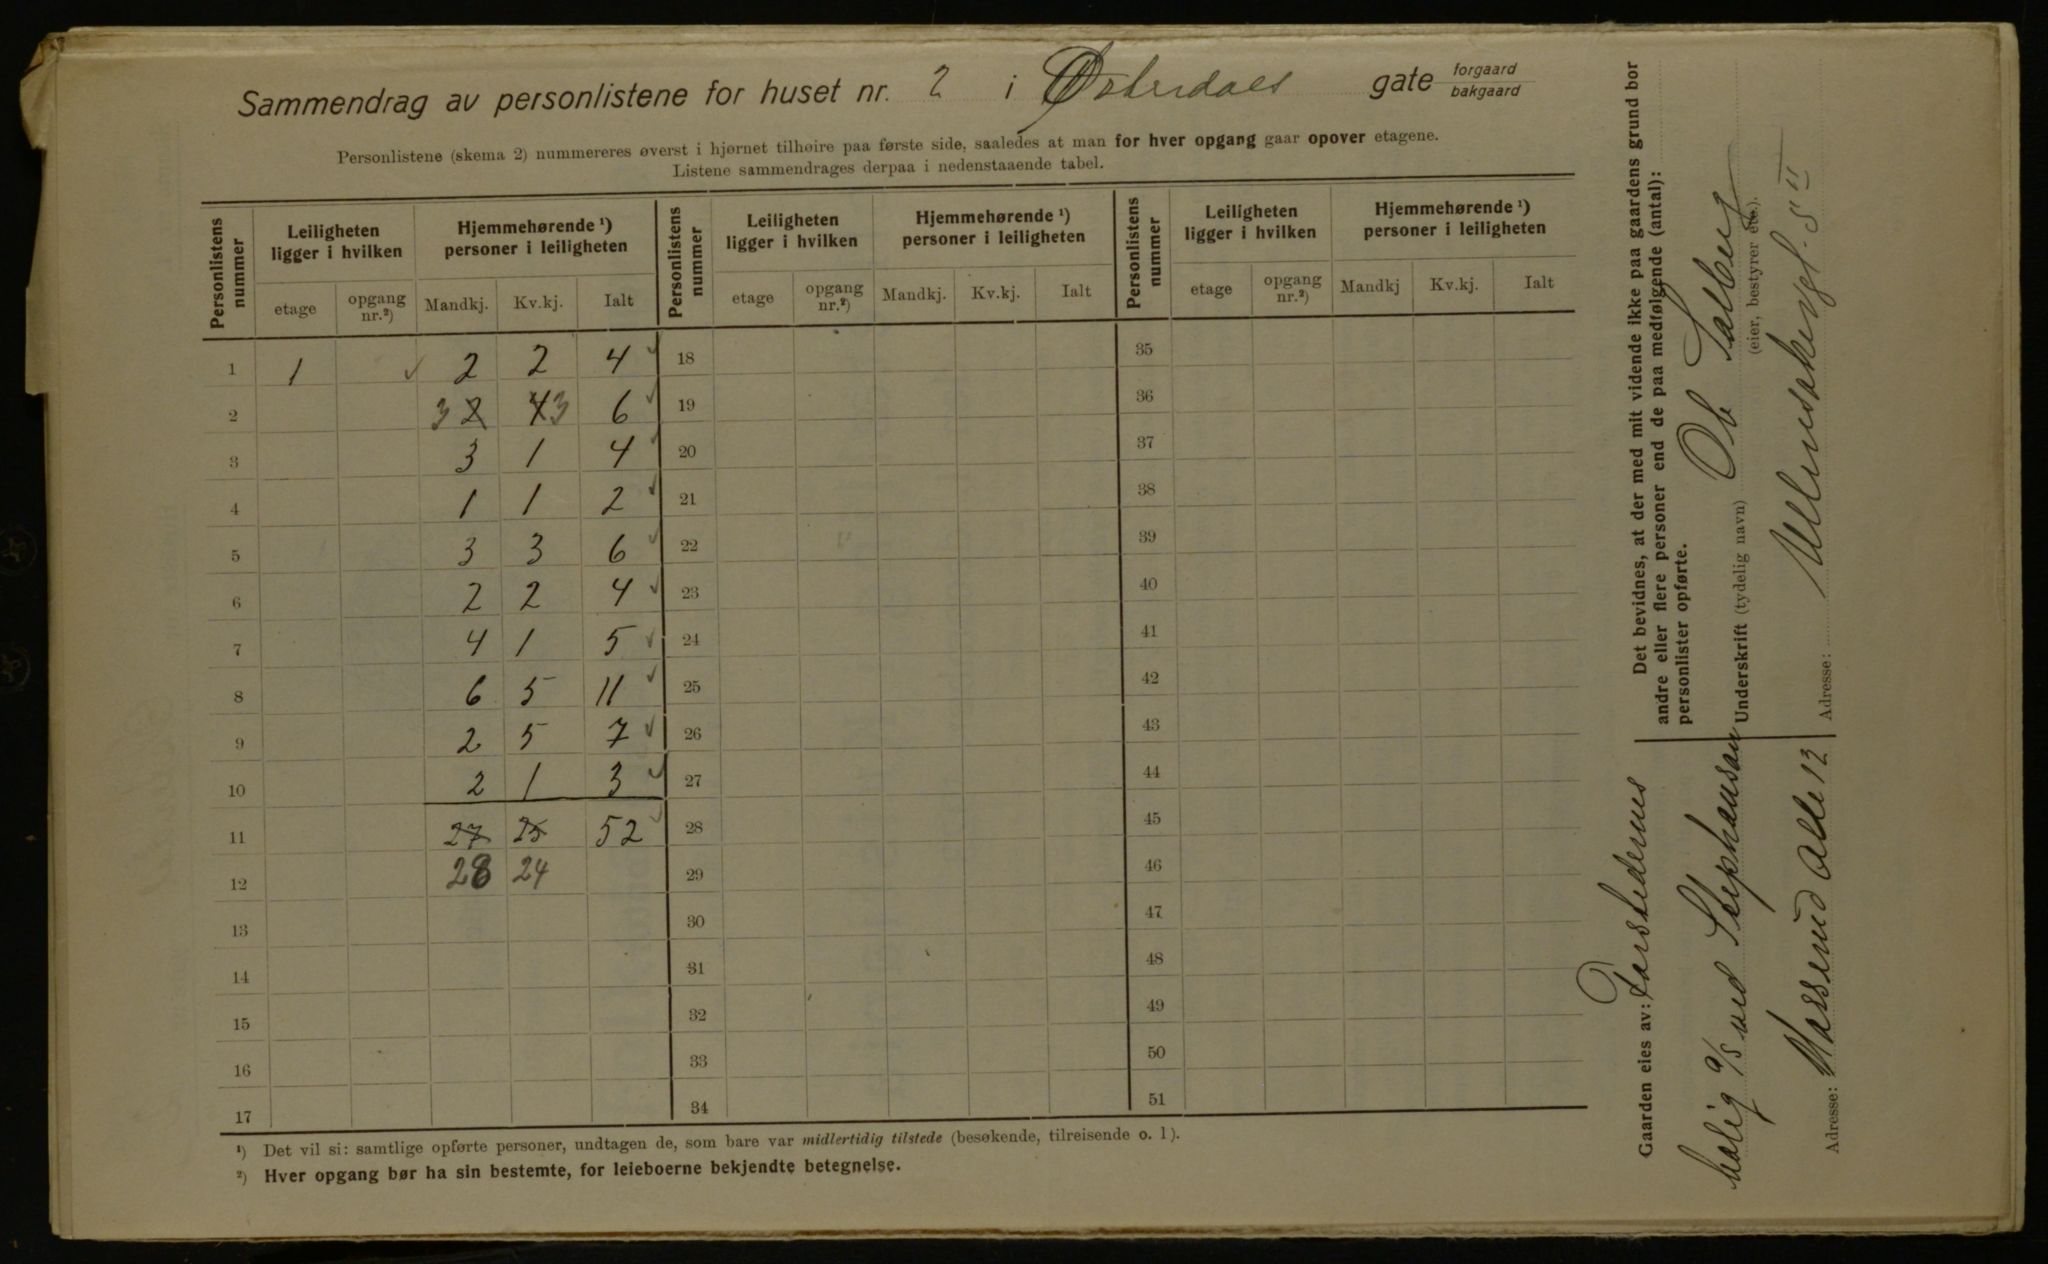 Sammendrag av personlistene for huset nr. 2 i Østerdals gate forgaard bakgaard
Personlistene (skema 2) nummereres øverst i hjørnet tilhøire paa første side, saaledes at man for hver opgang gaar opover etagene.
Listene sammendrages derpaa i nedenstaaende tabel.
Personlistens nummer | Leiligheten ligger i hvilken | Hjemmehørende ¹) personer i leiligheten | Personlistens nummer | Leiligheten ligger i hvilken | Hjemmehørende ¹) personer i leiligheten | Personlistens nummer | Leiligheten ligger i hvilken | Hjemmehørende ¹) personer i leiligheten
etage | opgang nr.²) | Mandkj. | Kv.kj. | Ialt | etage | opgang nr.²) | Mandkj. | Kv.kj. | Ialt | etage | opgang nr.²) | Mandkj | Kv.kj. | Ialt
1 1 ✓ 2 2 4 ✓ 18 35
2 3 2 4 3 6 ✓ 19 36
3 3 1 4 ✓ 20 37
4 1 1 2 ✓ 21 38
5 3 3 6 ✓ 22 39
6 2 2 4 ✓ 23 40
7 4 1 5 ✓ 24 41
8 6 5 11 ✓ 25 42
9 2 5 7 ✓ 26 43
10 2 1 3 ✓ 27 44
11 27 25 52 ✓ 28 45
12 28 24 29 46
13 30 47
14 31 48
15 32 49
16 33 50
17 34 51
¹) Det vil si: samtlige opførte personer, undtagen de, som bare var midlertidig tilstede (besøkende, tilreisende o. l).
²) Hver opgang bør ha sin bestemte, for leieboerne bekjendte betegnelse.
Det bevidnes, at der med mit vidende ikke paa gaardens grund bor
andre eller flere personer end de paa medfølgende (antal):
personlister opførte.
Underskrift (tydelig navn) Ole Solberg
(eier, bestyrer etc.).
Adresse: Ullensakergt. 5 II
Gaarden eies av: Forstedernes
bolig A/S ved Stephansen
Adresse: Mosserud Alle 12